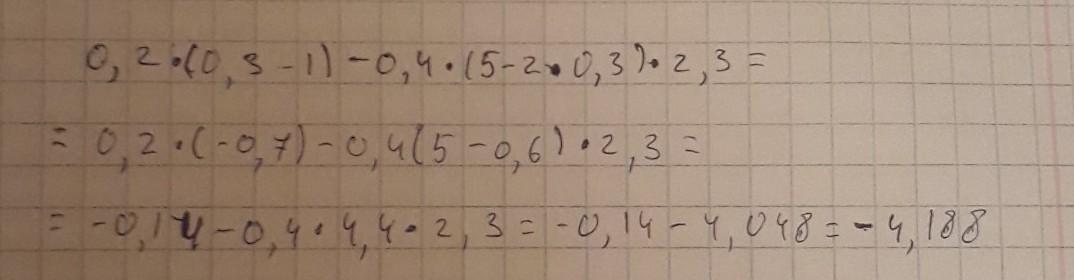 0,2·(0,3-1)-0,4·(5-2·0,3)·2,3=
=0,2·(-0,7)-0,4(5-0,6)·2,3=
=-0,14-0,4·4,4·2,3=-0,14-4,048=-4,188